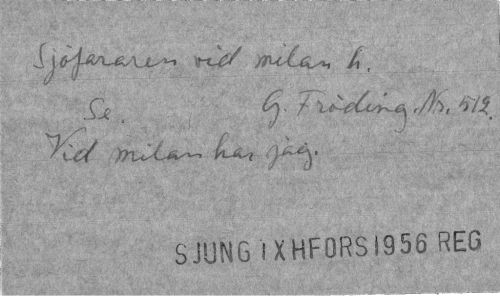 Sjöfararen vid milan h.
G. Fröding. Nr. 512.
Se.
Vid milan har jag.
SJUNG IXHFORS1956 REG